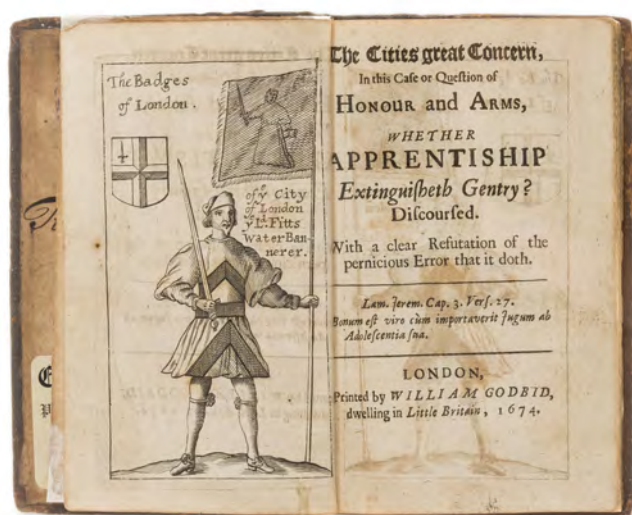 The Badges
of London.
of yͤ City
of London
yͤ Lᵈ. Fitts
Water Ban-
nerer.
The Cities great Concern,
In this Caſe or Queſtion of
HONOUR and ARMS,
WHETHER
APPRENTISHIP
Extinguiſheth Gentry?
Diſcourſed.
With a clear Refutation of the
pernicious Error that it doth.
Lam. Jerem. Cap. 3. Verſ. 27.
Bonum eſt viro cùm importaverit Jugum ab
Adoleſcentia ſua.
LONDON,
Printed by WILLIAM GODBID,
dwelling in Little Britain, 1674.